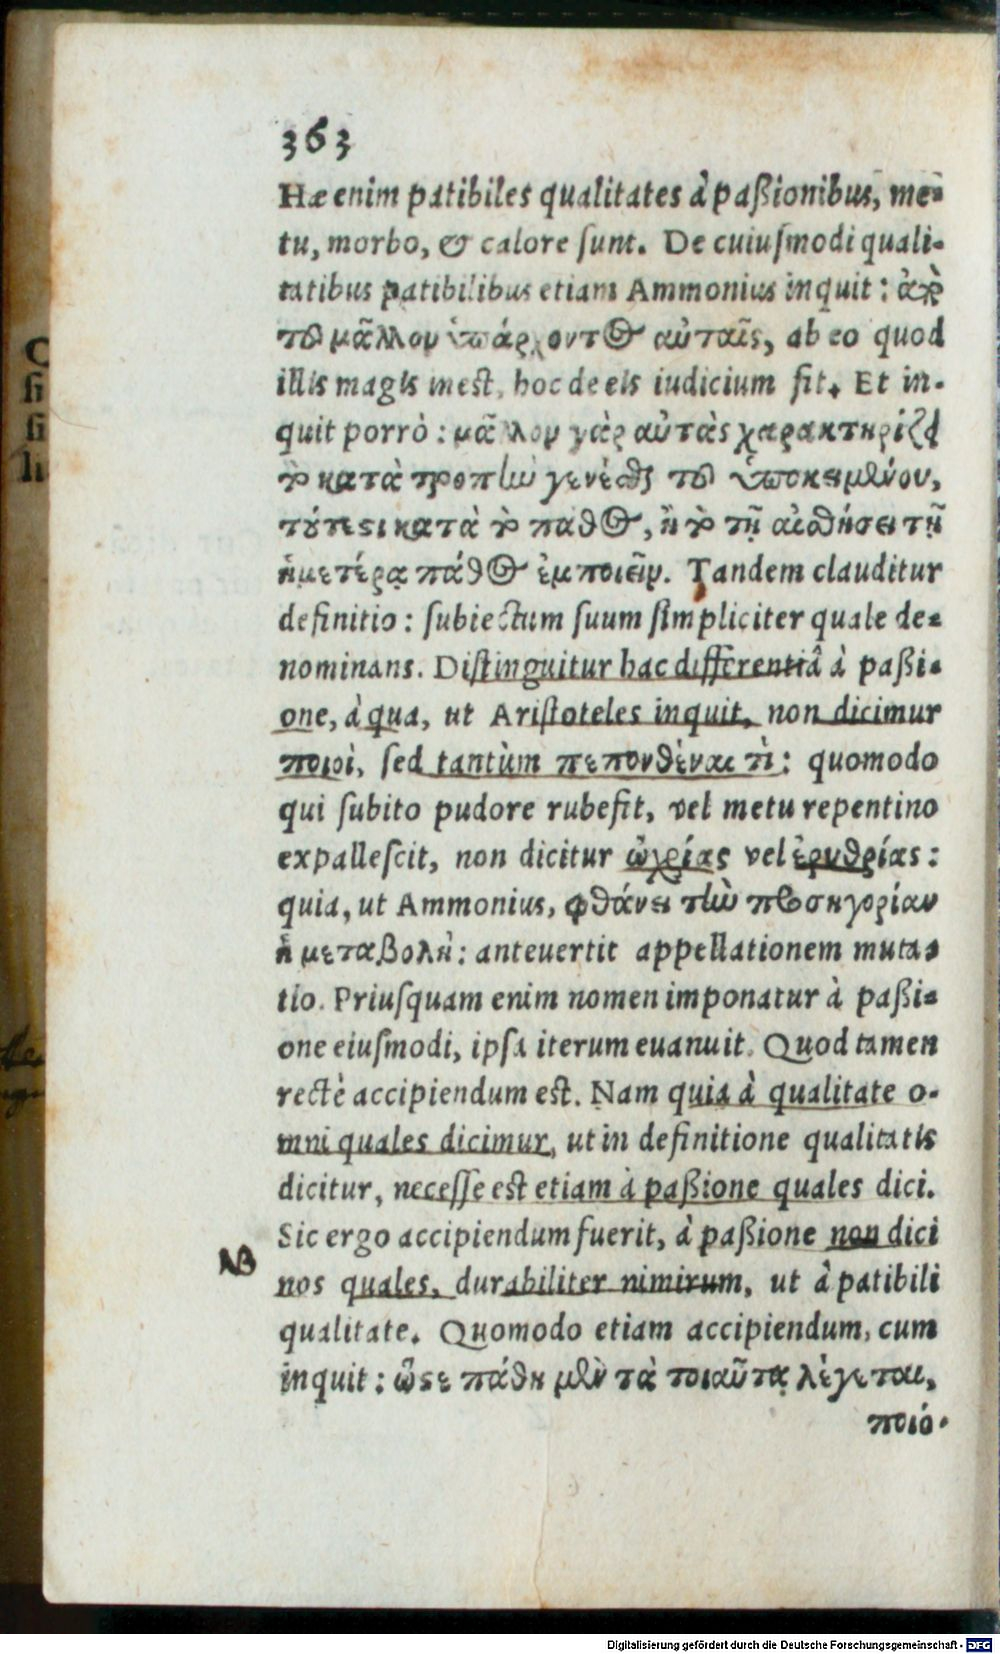 363
Hæ enim patibiles qualitates à paßionibus, me-
tu, morbo, & calore ſunt. De cuiuſmodi quali-
tatibus patibilibus etiam Ammonius inquit: ἀπὸ
τοῦ μᾶλλον ὑπάρχοντος αὐταῖς, ab eo quod
illis magis ineſt, hoc de eis iudicium fit. Et in-
quit porrò: μᾶλλον γὰρ αὐτὰς χαρακτηρίζει
τὸ κατὰ τροπὴν γενέσθαι τοῦ ὑποκειμένου,
τούτεστι κατὰ τὸ παθος, ἢ τὸ τῇ αἰσθήσει τῇ
ἡμετέρᾳ πάθος ἐμποιεῖν. Tandem clauditur
definitio: ſubiectum ſuum ſimpliciter quale de-
nominans. Diſtinguitur hac differentiâ à paßi-
one, à qua, ut Ariſtoteles inquit, non dicimur
ποιοὶ, ſed tantùm πεπονθέναι τὶ: quomodo
qui ſubito pudore rubefit, vel metu repentino
expalleſcit, non dicitur ὠχρίας vel ἐρυθρίας:
quia, ut Ammonius, φθάνει τὴν προσηγορίαν
ἡ μεταβολή: anteuertit appellationem muta-
tio. Priuſquam enim nomen imponatur à paßi-
one eiuſmodi, ipſa iterum euanuit. Quod tamen
rectè accipiendum eſt. Nam quia à qualitate o-
mni quales dicimur, ut in definitione qualitatis
dicitur, neceſſe eſt etiam à paßione quales dici.
Sic ergo accipiendum fuerit, à paßione non dici
NB
nos quales, durabiliter nimirum, ut à patibili
qualitate. Quomodo etiam accipiendum, cum
inquit: ὥστε πάθη μὲν τὰ τοιαῦτα λέγεται,
ποιό-
Digitalisierung gefördert durch die Deutsche Forschungsgemeinschaft - DFG